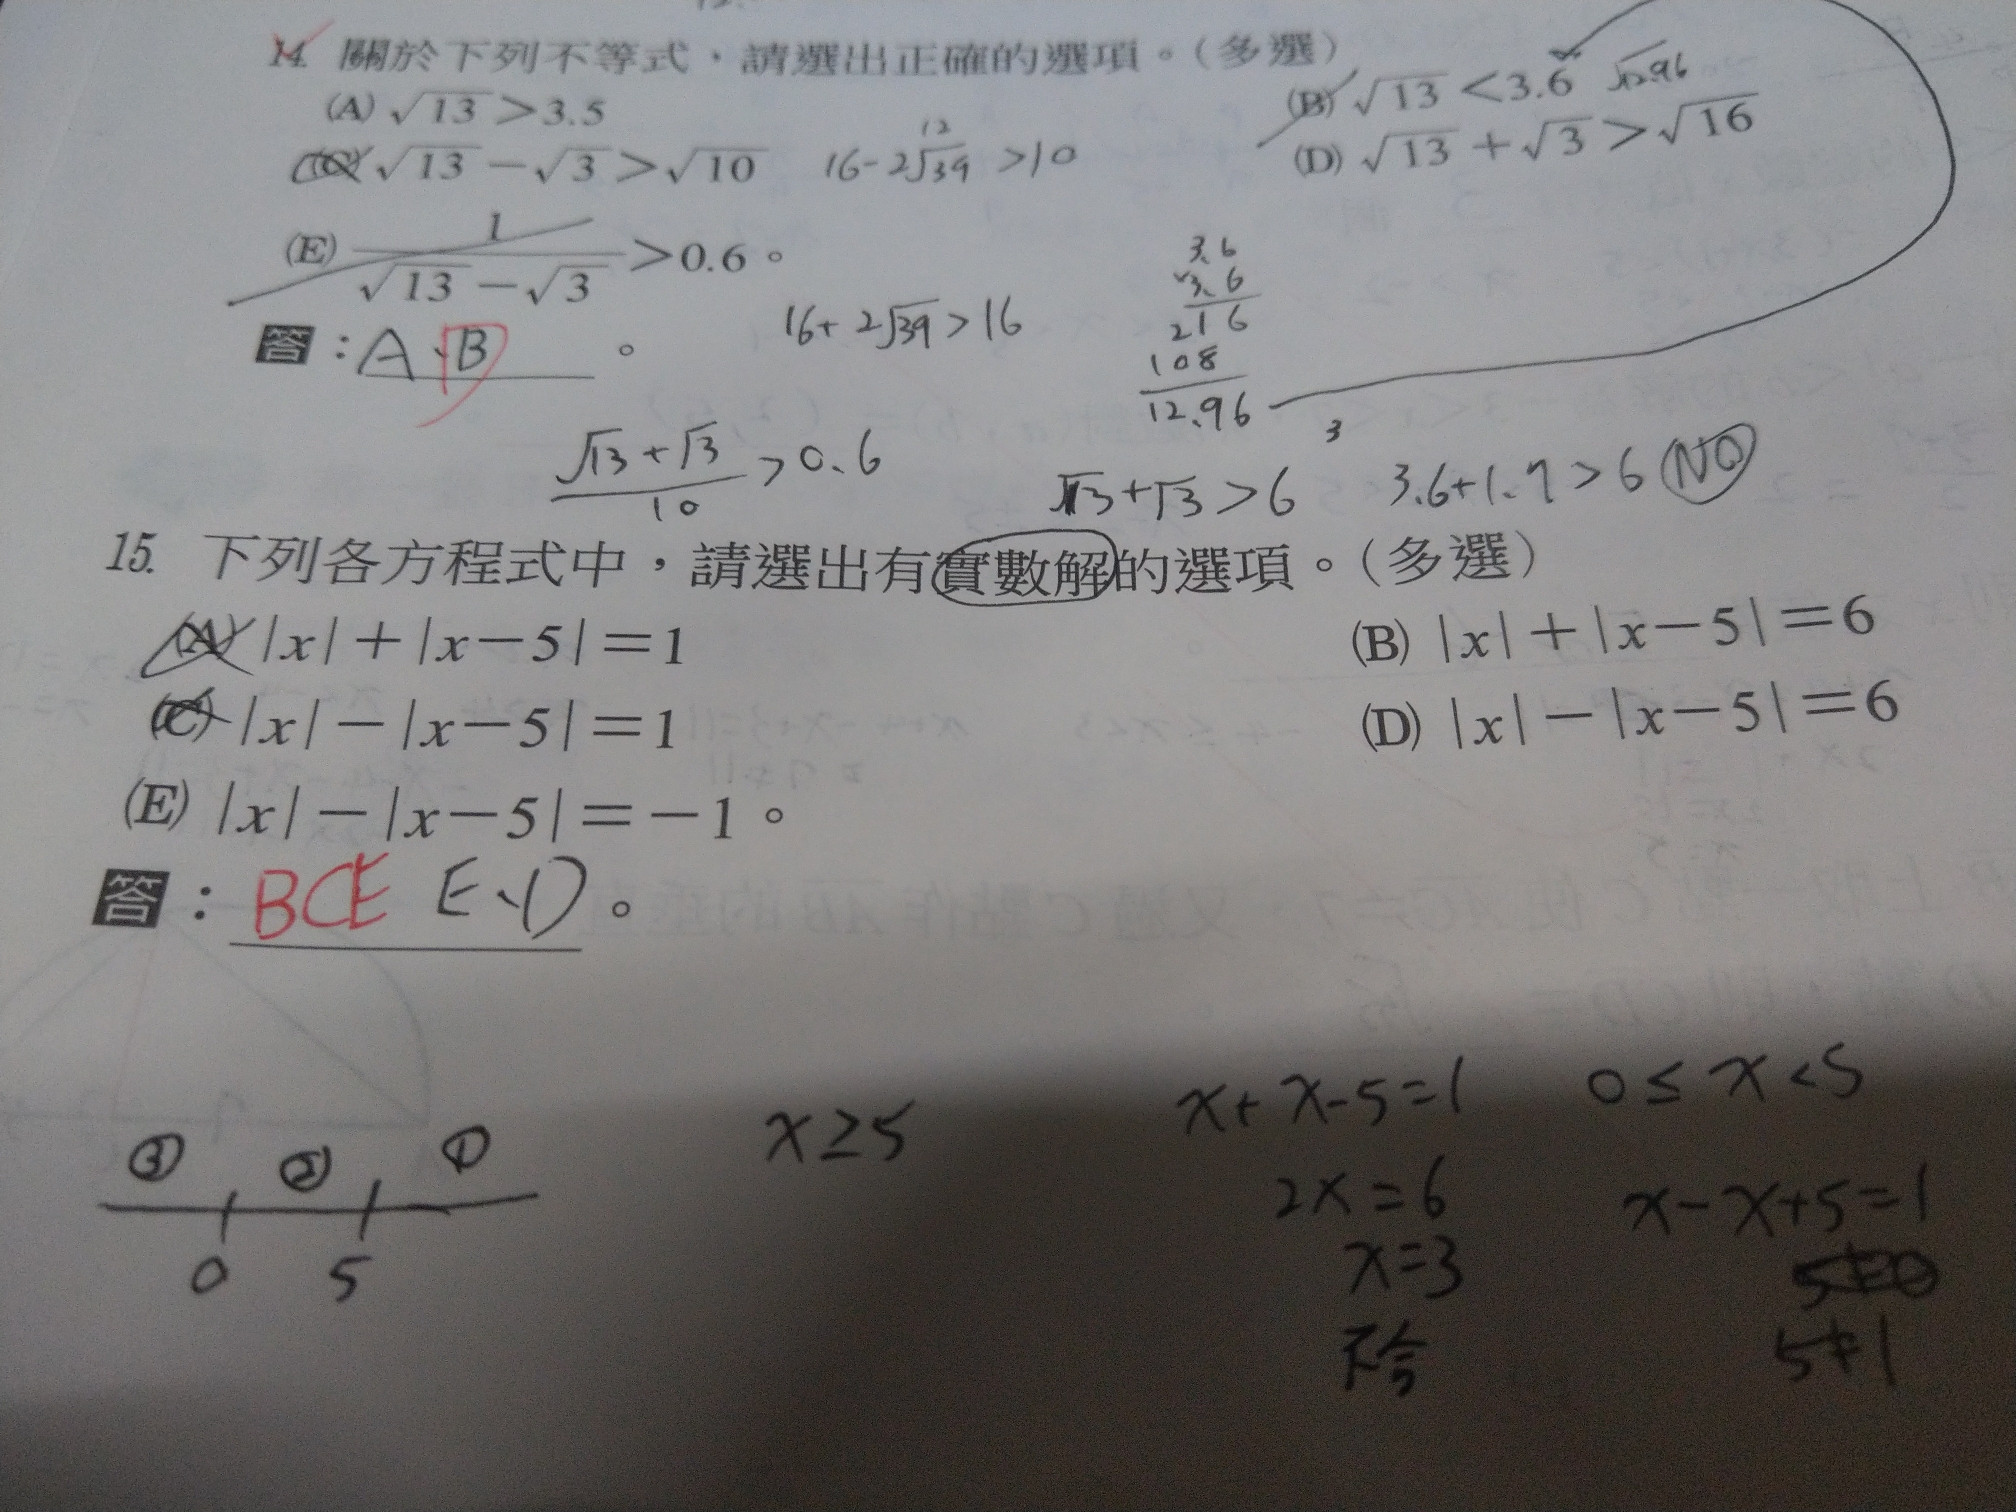 14. 關於下列不等式，請選出正確的選項。(多選)
(A) √13 > 3.5
(B) √13 < 3.6 √12.96
(C) √13 − √3 > √10 16 − 2√39 > 10
12
(D) √13 + √3 > √16
(E) 1/(√13 − √3) > 0.6。
答：A、B。
16 + 2√39 > 16
3.6
×3.6
216
108
12.96
(√13 + √3)/10 > 0.6
√13 + √3 > 6
3
3.6 + 1.7 > 6 NO
15. 下列各方程式中，請選出有實數解的選項。(多選)
(A) |x| + |x − 5| = 1
(B) |x| + |x − 5| = 6
(C) |x| − |x − 5| = 1
(D) |x| − |x − 5| = 6
(E) |x| − |x − 5| = −1。
答：BCE E、D。
③ ② ①
0 5
x ≥ 5
x + x − 5 = 1
2x = 6
x = 3
不合
0 ≤ x < 5
x − x + 5 = 1
5 ≠ 1